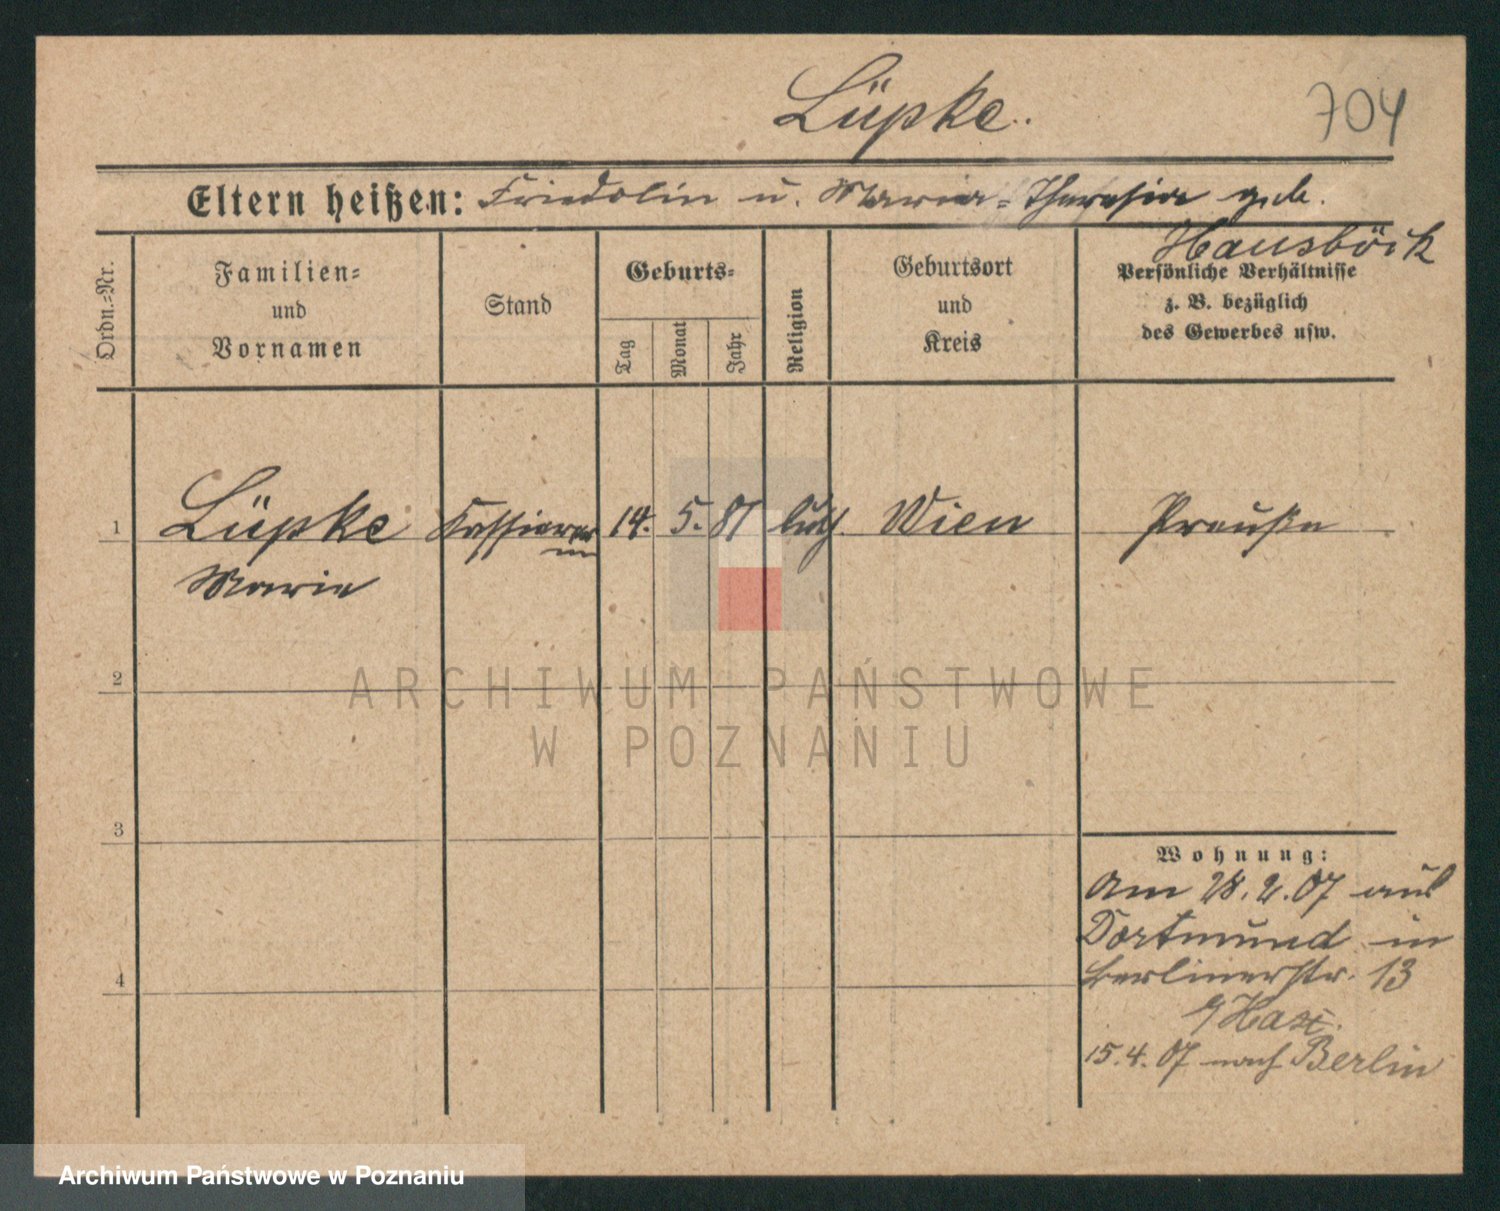 Lüpke.
704
Eltern heißen: Friedolin u. Maria=Theresia geb.
Hausböck
Ordn.=Nr.
Familien=
und
Vornamen
Stand
Geburts=
Tag
Monat
Jahr
Religion
Geburtsort
und
Kreis
Persönliche Verhältnisse
z. B. bezüglich
des Gewerbes usw.
1
Lüpke Kassiererin 14. 5. 81 luth. Wien Preuße
Marie
2
ARCHIWUM PAŃSTWOWE
W POZNANIU
3
Wohnung:
Am 28.2.07 aus
Dortmund in
Berlinerstr. 13
4
15.4.07 nach Berlin
Archiwum Państwowe w Poznaniu